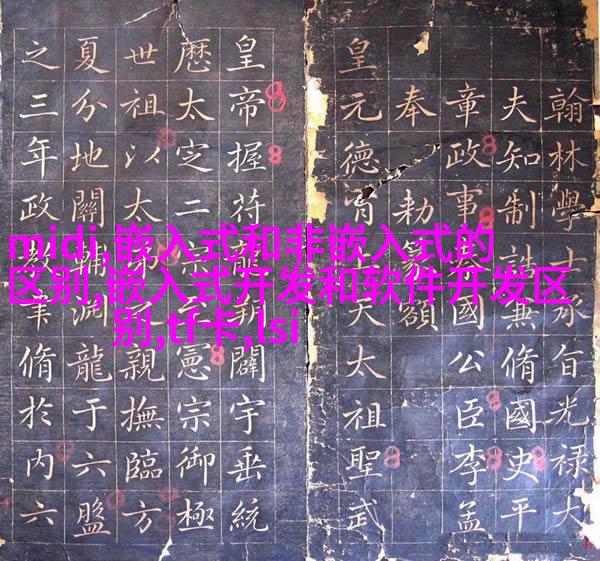 翰林學士承旨光禄大
夫知制誥兼脩國史平
章政事國公臣李孟
奉勅篆額
皇元德天太祖聖武
皇帝握符龍闢宇垂統
厯太定二宗憲宗御極
世祖以太親撫臨方
夏分地關輔淵龍于六盤
之三年政教聿脩於內六
midi,嵌入式和非嵌入式的
区别,嵌入式开发和软件开发区
别,tf卡,lsi